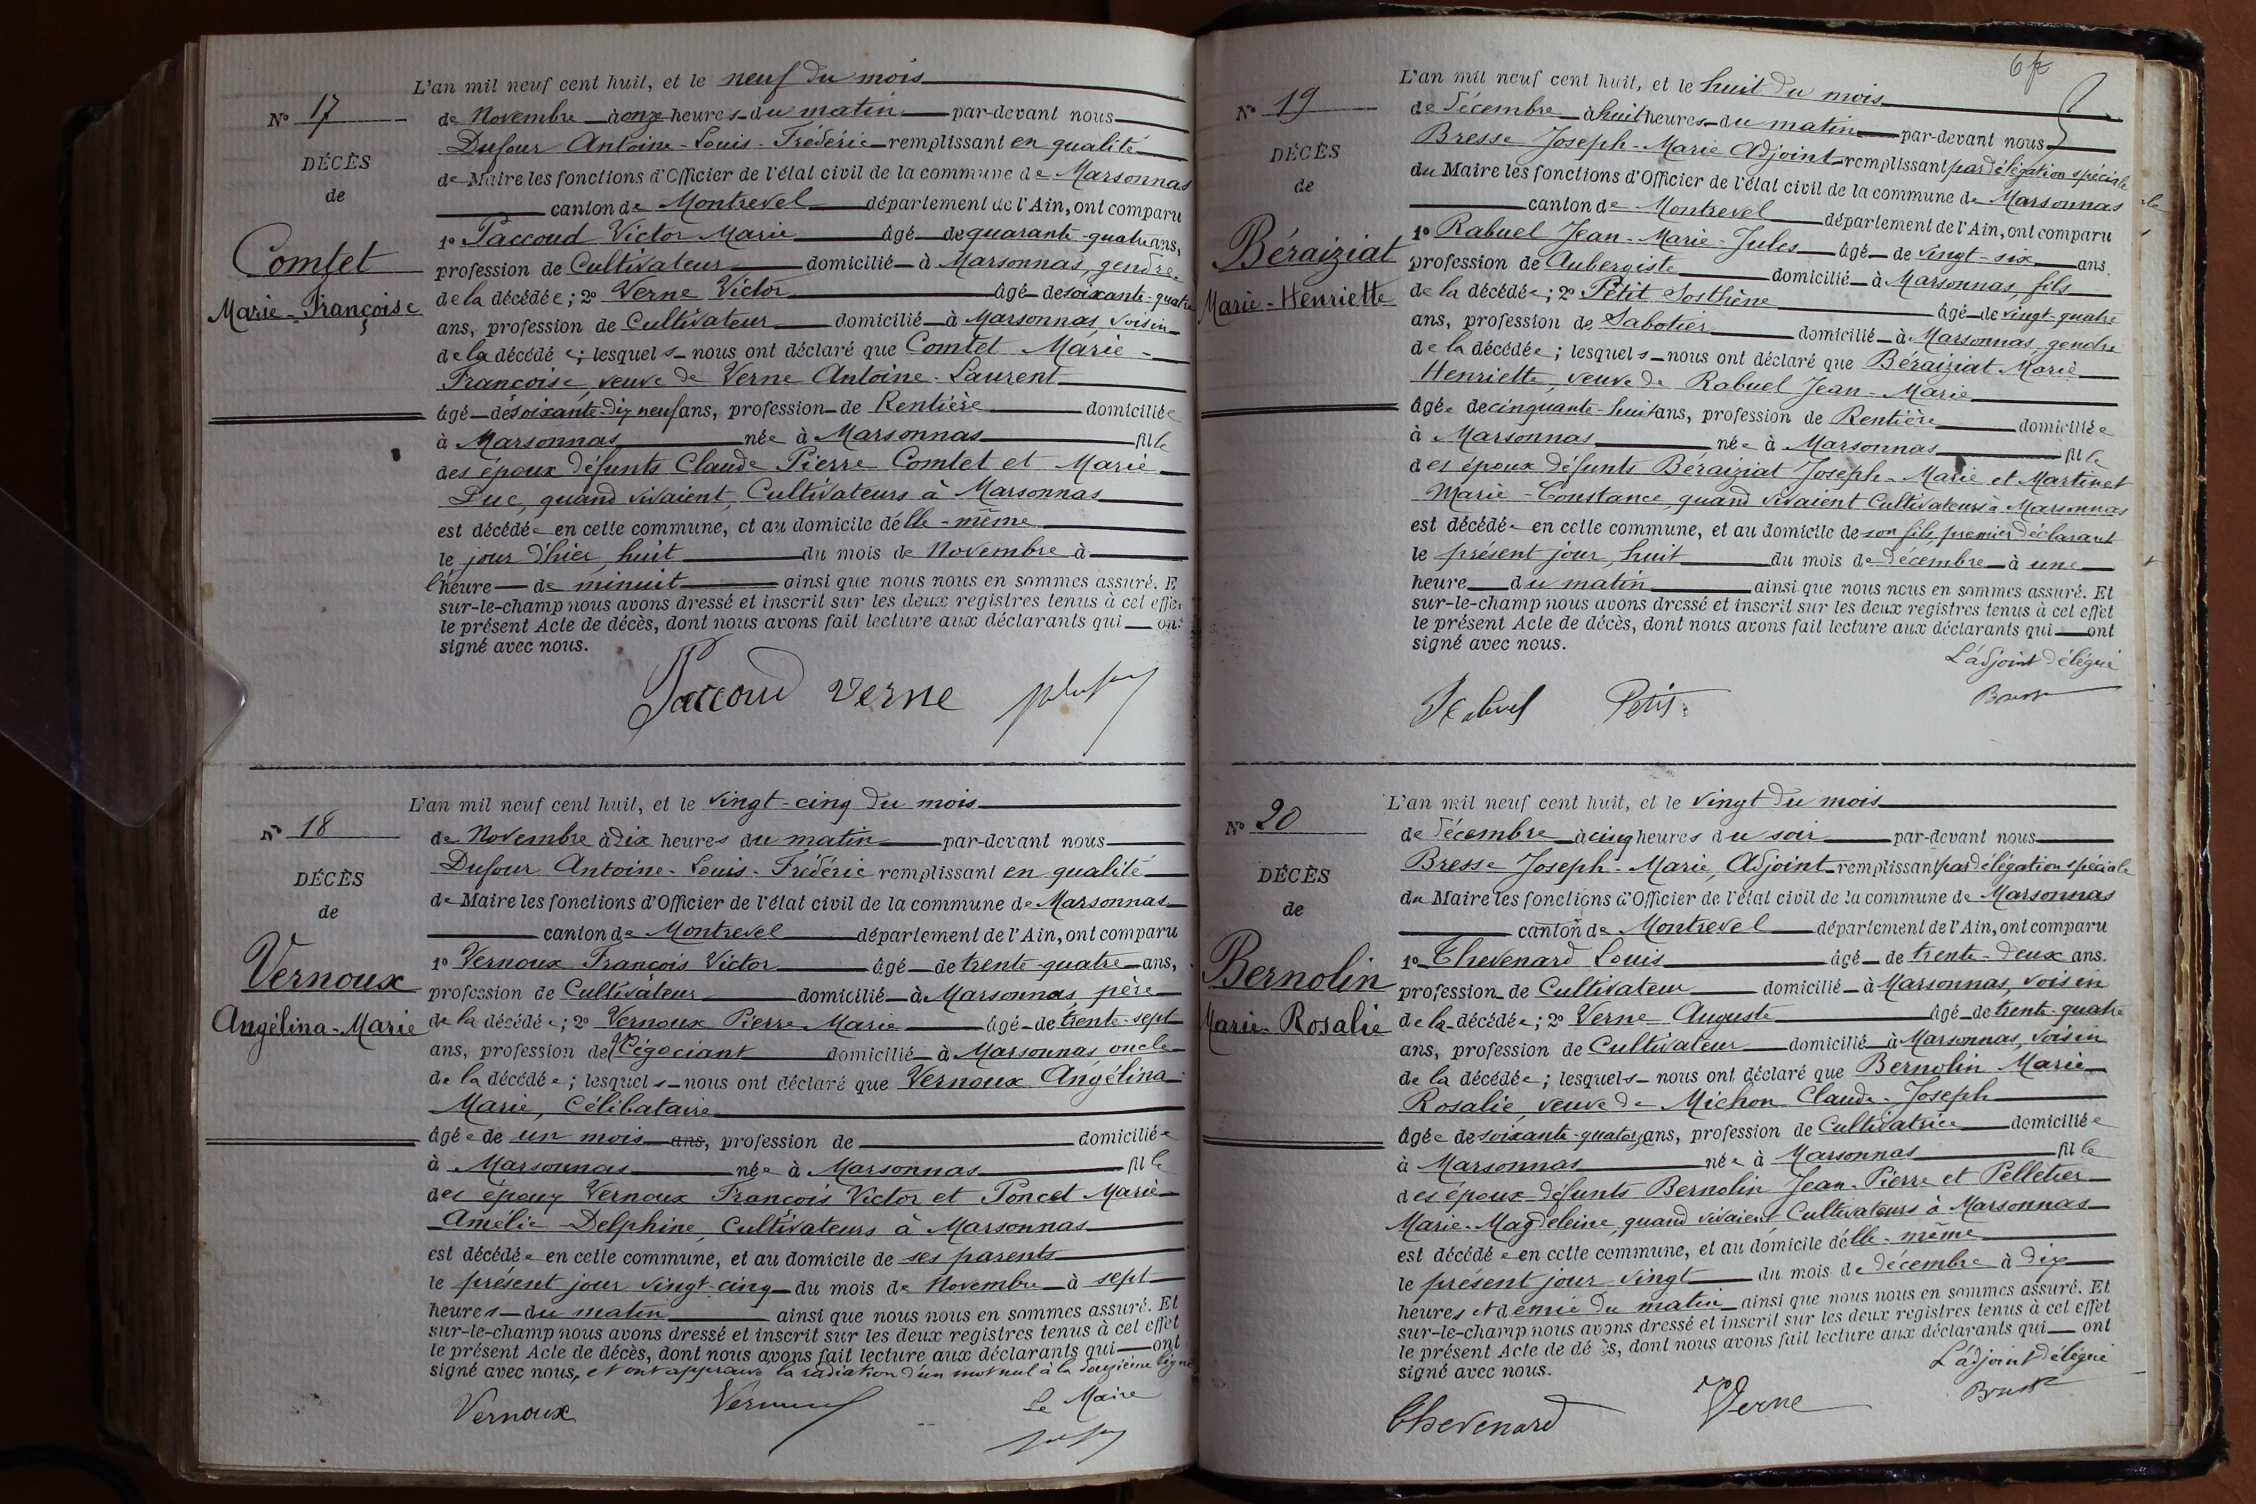 L'an mil neuf cent huit, et le neuf du mois
N° 17
de Novembre à onze heures du matin par-devant nous
Dufour Antoine-Louis-Frédéric remplissant en qualité
DÉCÈS
de Maire les fonctions d'Officier de l'état civil de la commune de Marsonnas
de
canton de Montrevel département de l'Ain, ont comparu
1° Paccoud Victor Marie âgé de quarante-quatre ans,
Comtet
profession de Cultivateur domicilié à Marsonnas, gendre
Marie-Françoise
de la décédée; 2° Verne Victor âgé de soixante-quatre
ans, profession de Cultivateur domicilié à Marsonnas, voisin
de la décédée; lesquels nous ont déclaré que Comtet Marie-
Françoise, veuve de Verne Antoine-Laurent
âgé de soixante-dix neuf ans, profession de Rentière domiciliée
à Marsonnas née à Marsonnas fille
des époux défunts Claude Pierre Comtet et Marie
Luc, quand vivaient, Cultivateurs à Marsonnas
est décédée en cette commune, et au domicile d'elle-même
le jour d'hier, huit du mois de Novembre à
l'heure de minuit ainsi que nous nous en sommes assuré. E
sur-le-champ nous avons dressé et inscrit sur les deux registres tenus à cet effet
le présent Acte de décès, dont nous avons fait lecture aux déclarants qui ont
signé avec nous.
Paccoud Verne
L'an mil neuf cent huit, et le vingt-cinq du mois
N° 18
de Novembre à dix heures du matin par-devant nous
Dufour Antoine-Louis-Frédéric remplissant en qualité
DÉCÈS
de Maire les fonctions d'Officier de l'état civil de la commune de Marsonnas
de
canton de Montrevel département de l'Ain, ont comparu
1° Vernoux François Victor âgé de trente-quatre ans,
Vernoux
profession de Cultivateur domicilié à Marsonnas, père
Angélina-Marie
de la décédée; 2° Vernoux Pierre Marie âgé de trente-sept
ans, profession de Négociant domicilié à Marsonnas, oncle
de la décédée; lesquels nous ont déclaré que Vernoux Angélina-
Marie, Célibataire
âgée de un mois ans, profession de domiciliée
à Marsonnas née à Marsonnas fille
des époux Vernoux François Victor et Poncet Marie-
Amélie-Delphine, Cultivateurs à Marsonnas
est décédée en cette commune, et au domicile de ses parents
le présent jour vingt-cinq du mois de Novembre à sept
heures du matin ainsi que nous nous en sommes assuré. Et
sur-le-champ nous avons dressé et inscrit sur les deux registres tenus à cet effet
le présent Acte de décès, dont nous avons fait lecture aux déclarants qui ont
signé avec nous, et ont approuvé la radiation d'un mot nul à la douzième ligne
Le Maire
Vernoux Vernoux
L'an mil neuf cent huit, et le huit du mois
N° 19
de Décembre à huit heures du matin par-devant nous
Bresse Joseph-Marie Adjoint remplissant par délégation spéciale
DÉCÈS
du Maire les fonctions d'Officier de l'état civil de la commune de Marsonnas
de
canton de Montrevel département de l'Ain, ont comparu
1° Rabuel Jean-Marie-Jules âgé de vingt-six ans.
Béraiziat
profession de Aubergiste domicilié à Marsonnas, fils
Marie-Henriette
de la décédée; 2° Petit Sosthène âgé de vingt-quatre
ans, profession de Sabotier domicilié à Marsonnas, gendre
de la décédée; lesquels nous ont déclaré que Béraiziat Marie
Henriette, veuve de Rabuel Jean-Marie
âgée de cinquante-huit ans, profession de Rentière domiciliée
à Marsonnas née à Marsonnas fille
des époux défunts Béraiziat Joseph-Marie et Martinet
Marie-Constance, quand vivaient Cultivateurs à Marsonnas
est décédée en cette commune, et au domicile de son fils, premier déclarant
le présent jour, huit du mois de Décembre à une
heure du matin ainsi que nous nous en sommes assuré. Et
sur-le-champ nous avons dressé et inscrit sur les deux registres tenus à cet effet
le présent Acte de décès, dont nous avons fait lecture aux déclarants qui ont
signé avec nous.
L'adjoint délégué
Rabuel Petit Bresse
L'an mil neuf cent huit, et le vingt du mois
N° 20
de Décembre à cinq heures du soir par-devant nous
Bresse Joseph-Marie, Adjoint remplissant par délégation spéciale
DÉCÈS
du Maire les fonctions d'Officier de l'état civil de la commune de Marsonnas
de
canton de Montrevel département de l'Ain, ont comparu
1° Thevenard Louis âgé de trente-deux ans.
Bernolin
profession de Cultivateur domicilié à Marsonnas, voisin
Marie-Rosalie
de la décédée; 2° Verne Auguste âgé de trente-quatre
ans, profession de Cultivateur domicilié à Marsonnas, voisin
de la décédée; lesquels nous ont déclaré que Bernolin Marie
Rosalie, veuve de Michon Claude-Joseph
âgée de soixante-quatorze ans, profession de Cultivatrice domiciliée
à Marsonnas née à Marsonnas fille
des époux défunts Bernolin Jean-Pierre et Pelletier
Marie-Magdeleine, quand vivaient Cultivateurs à Marsonnas
est décédée en cette commune, et au domicile d'elle-même
le présent jour vingt du mois de décembre à dix
heures et demie du matin ainsi que nous nous en sommes assuré. Et
sur-le-champ nous avons dressé et inscrit sur les deux registres tenus à cet effet
le présent Acte de décès, dont nous avons fait lecture aux déclarants qui ont
signé avec nous.
L'adjoint délégué
Thevenard Verne Bresse